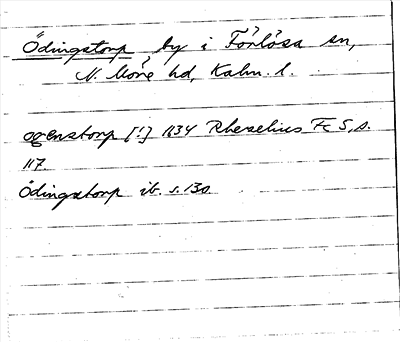 Ödingstorp by i Förlösa sn,
N. Möre hd, Kalm. l.
ogenstorp [!] 1634 Rhezelius FS, s.
117.
Ödingstorp ib. s. 130